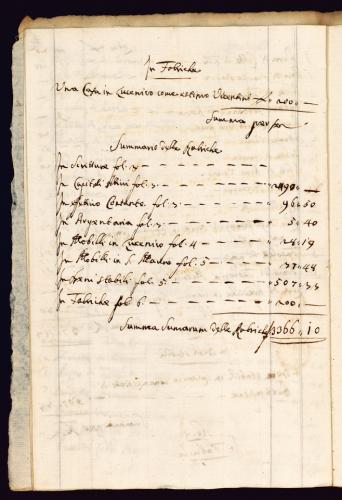 In Fabriche
Una Casa in Lucenico come estimo f. 200.—
Summa per se
Summario delle Rubriche
In Scritture fol: —
In Capitali Attivi fol: 3. — 2490. —
In Contante fol: 3. — 96. 50
In Argentaria fol: 3. — 5. 40
In Mobili in Lucenico fol: 4 — 28. 19
In Mobili in S. Mauro fol: 5 — 37. 48
In Beni stabili fol: 5. — 507. 33
In Fabriche fol: 6. — 200. —
Summa Sumarum delle Rubriche 3366. 10